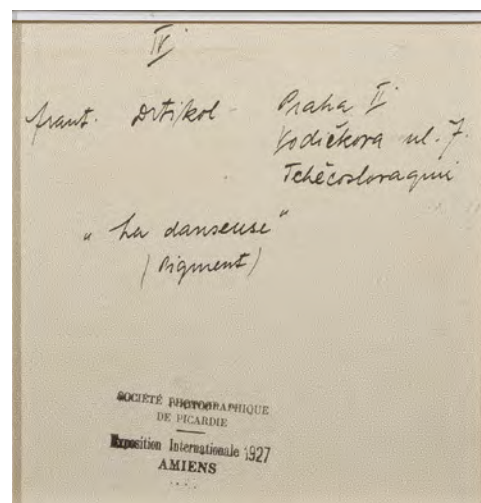 IV.
Frant. Drtikol - Praha II.
Vodičkova ul. 7.
Tchècoslovaquie
"La danseuse"
(Pigment)
SOCIÉTÉ PHOTOGRAPHIQUE
DE PICARDIE
Exposition Internationale 1927
AMIENS